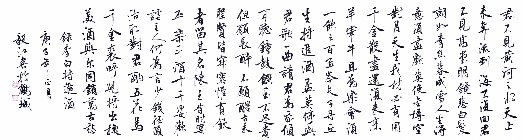 君不見黃河之水天上
來奔流到海不復回君
不見高堂明鏡悲白髮
朝如青絲暮成雪人生得
意須盡歡莫使金樽空
對月天生我材必有用
千金散盡還復來烹
羊宰牛且為樂會須
一飲三百杯岑夫子丹丘
生將進酒杯莫停與
君歌一曲請君為我傾
聽鐘鼓饌玉不足貴
但願長醉不願醒古來
聖賢皆寂寞惟有飲
者留其名陳王昔時宴
平樂斗酒十千恣歡
謔主人何為言少錢徑須
沽取對君酌五花馬
千金裘呼兒將出換
美酒與爾同銷萬古愁
錄李白將進酒
庚子年 月